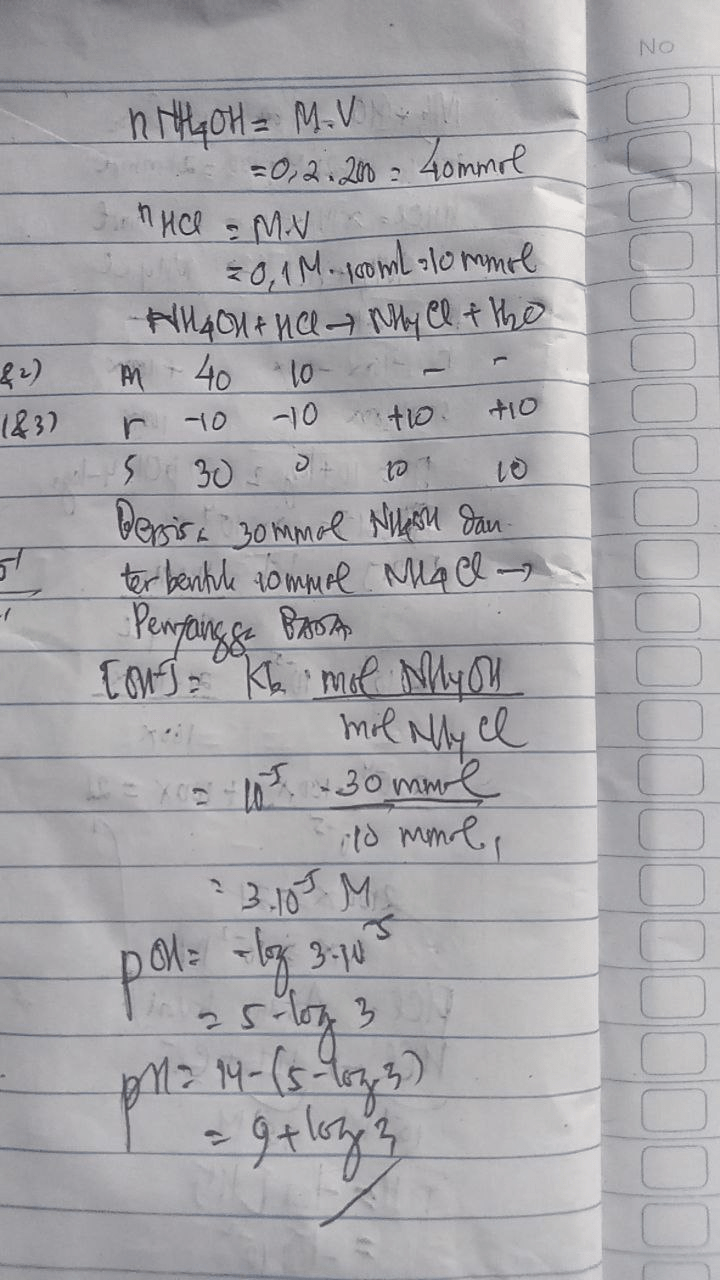 NO
n NH4OH = M.V
= 0,2.200 = 40 mmol
n HCl = M.V
= 0,1 M. 100 mL = 10 mmol
NH4OH + HCl → NH4Cl + H2O
&2) m 40 10 - -
1&3) r -10 -10 +10 +10
s 30 0 10 10
30 mmol NH4OH dan
terbentuk 10 mmol NH4Cl →
Penyangga BASA
[OH-] = Kb . mol NH4OH
mol NH4Cl
= 10-5 . 30 mmol
10 mmol
= 3.10-5 M
pOH = -log 3.10-5
= 5 - log 3
pH = 14 - (5 - log 3)
= 9 + log 3